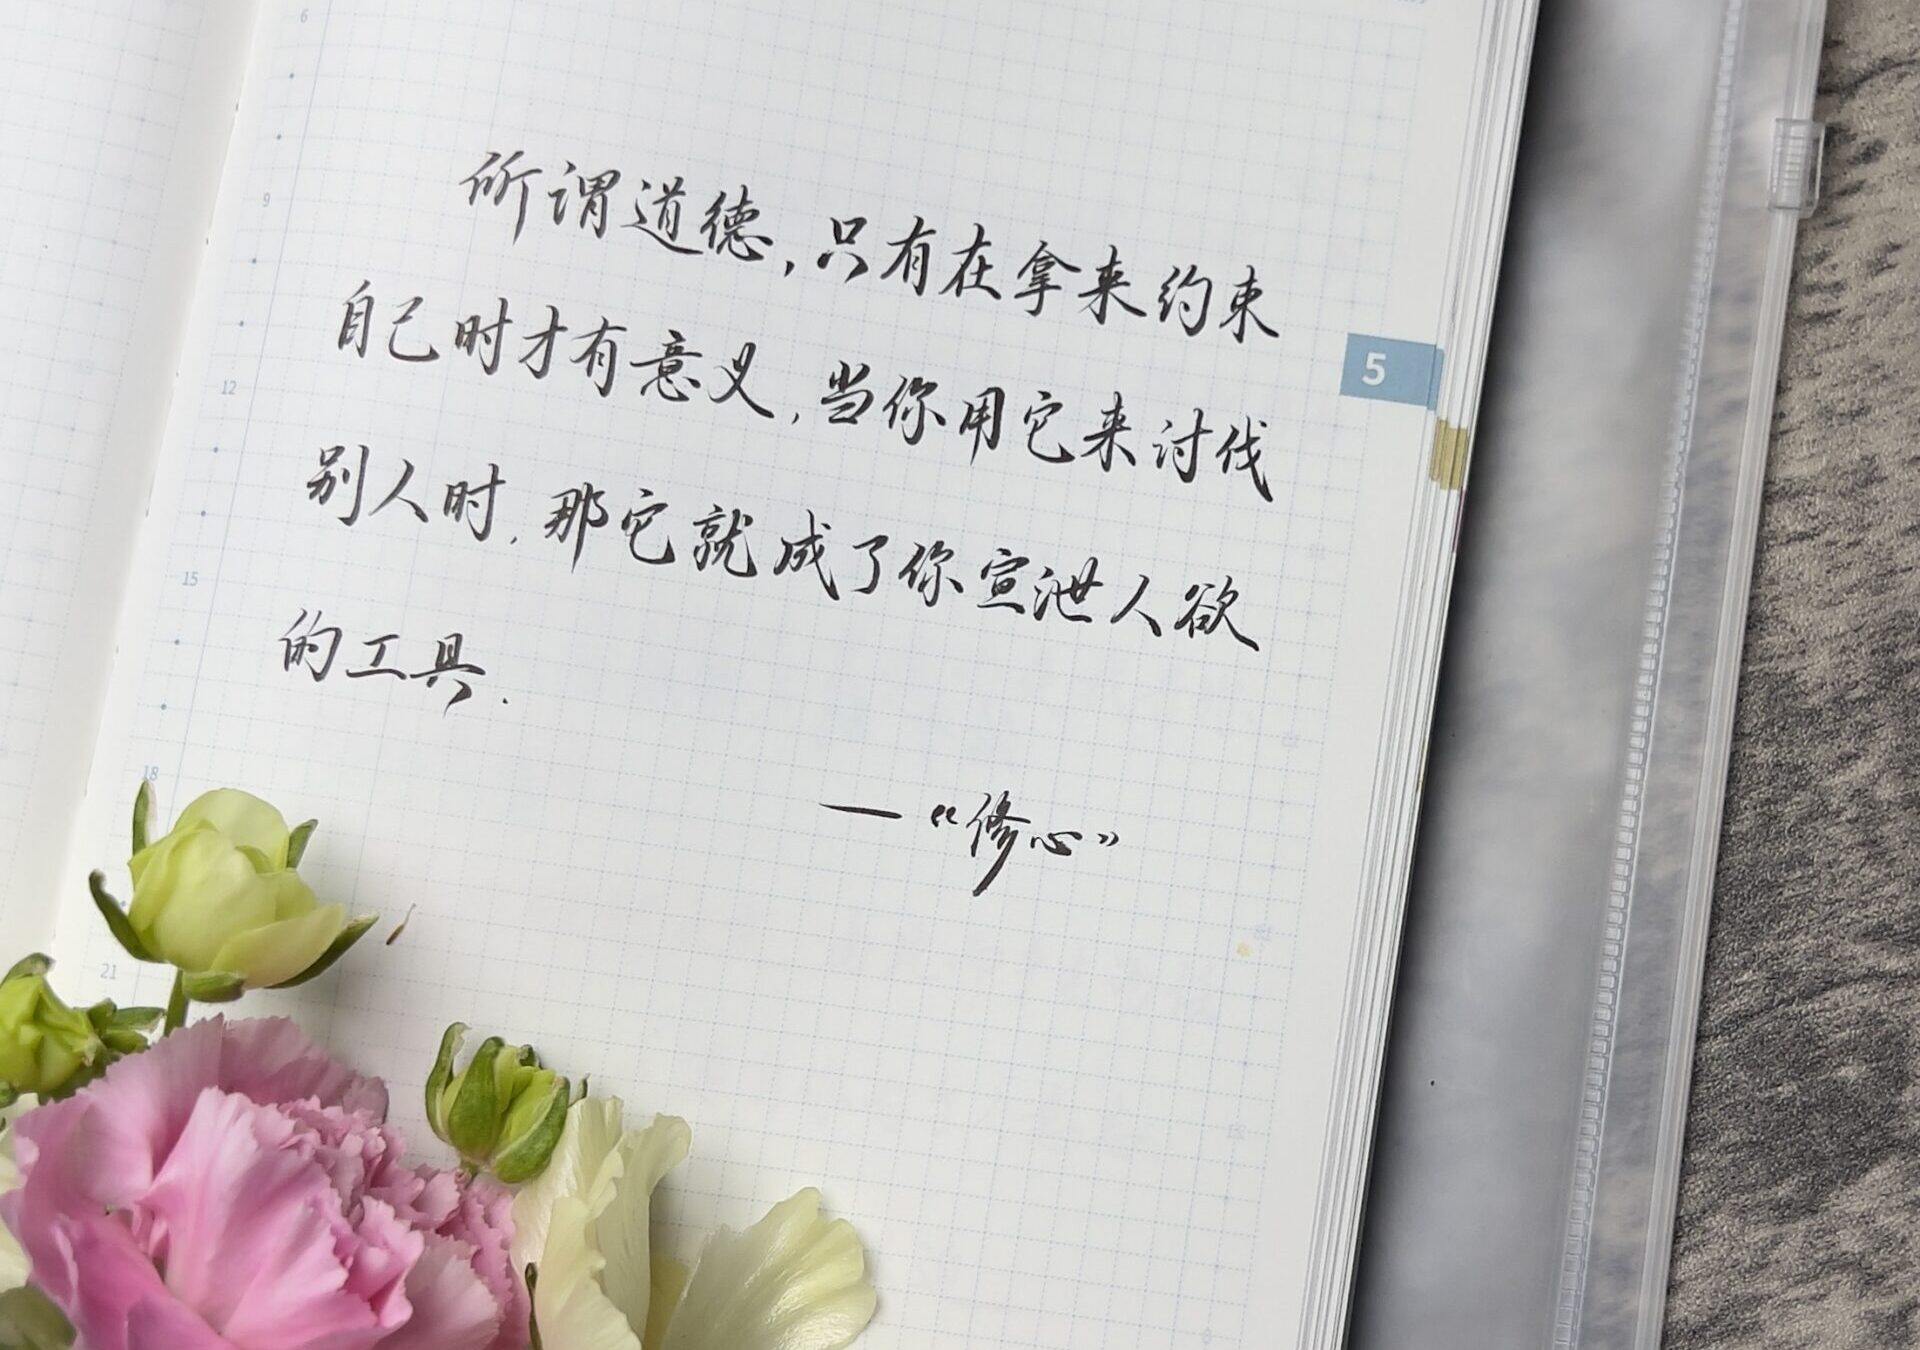 6
所谓道德,只有在拿来约束
9
自己时才有意义,当你用它来讨伐
5
12
别人时,那它就成了你宣泄人欲
15
的工具.
18
—《修心》
21